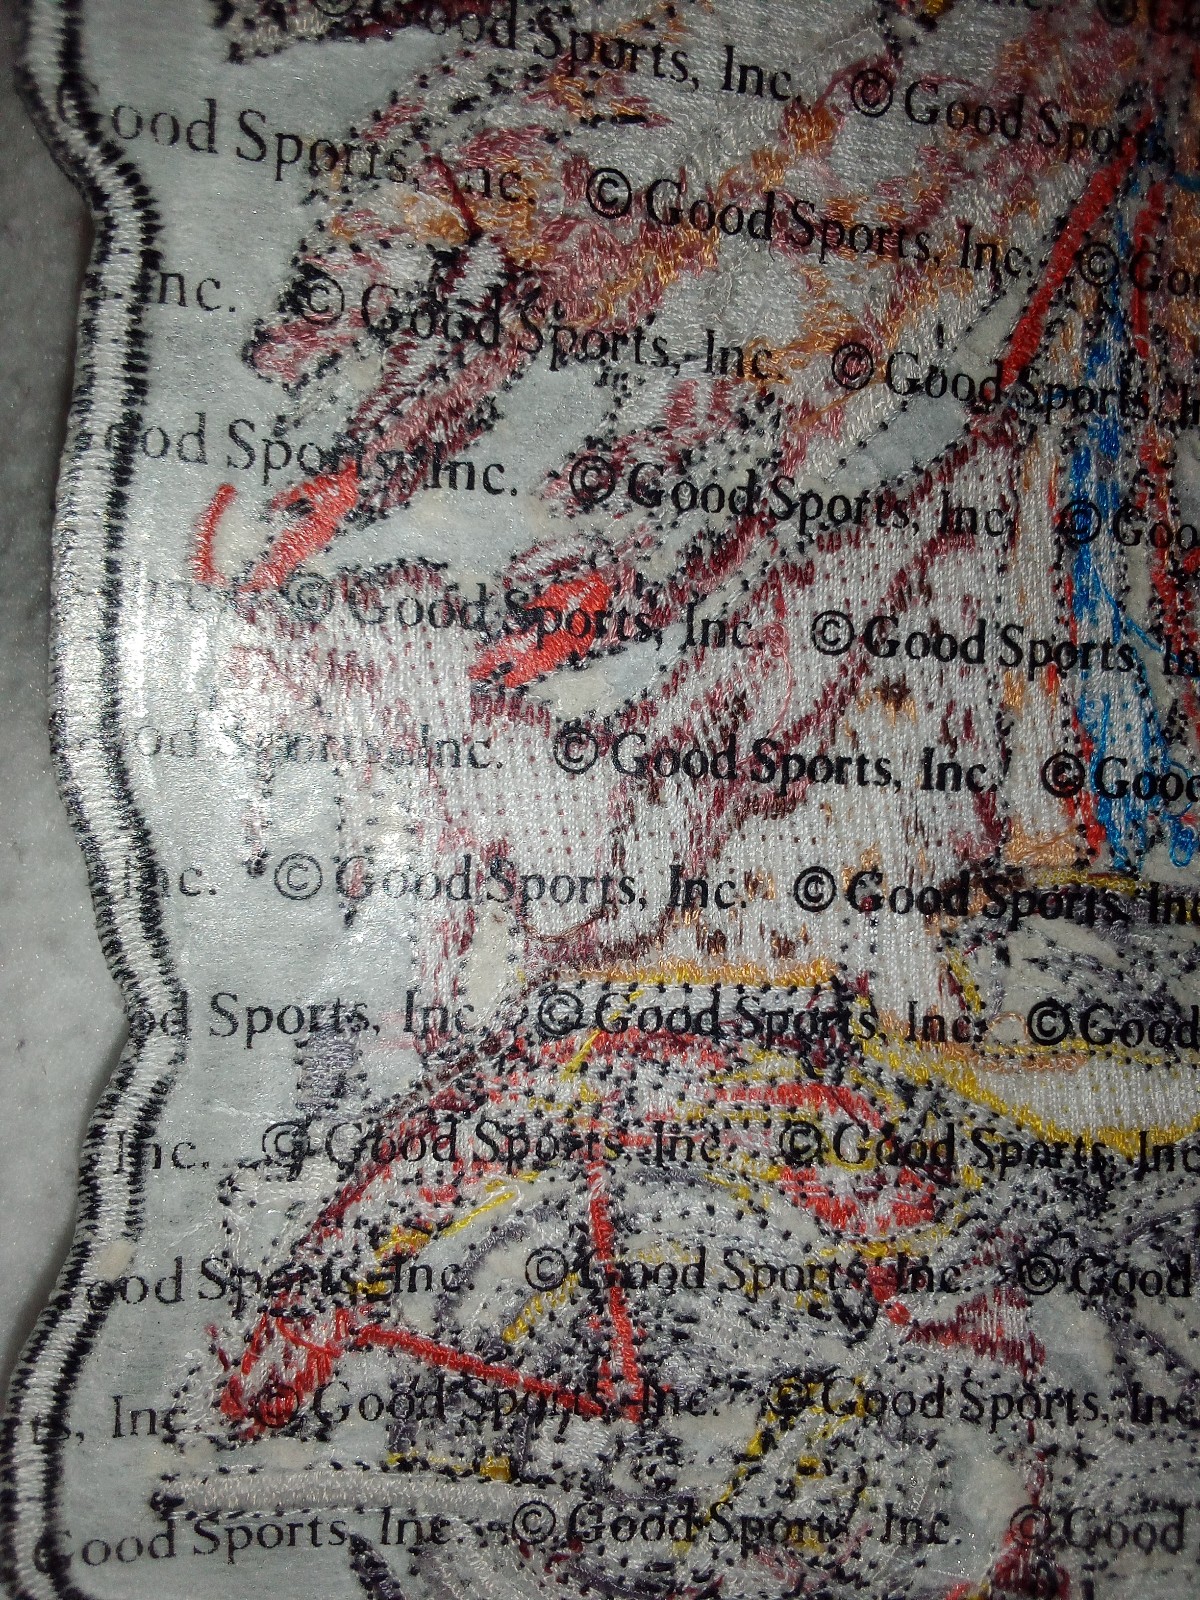 © Good Sports, Inc. © Good Sports,
ood Sports, Inc. © Good Sports, Inc. © Goo
Inc. © Good Sports, Inc. © Good Sports,
ood Sports, Inc. © Good Sports, Inc. © Goo
Inc. © Good Sports, Inc. © Good Sports, In
od Sports, Inc. © Good Sports, Inc. © Good
Inc. © Good Sports, Inc. © Good Sports, Inc
od Sports, Inc. © Good Sports, Inc. © Good
Inc. © Good Sports, Inc. © Good Sports, Inc
ood Sports, Inc. © Good Sports, Inc. © Good
ts, Inc. © Good Sports, Inc. © Good Sports, Inc
Good Sports, Inc. © Good Sports, Inc. © Good